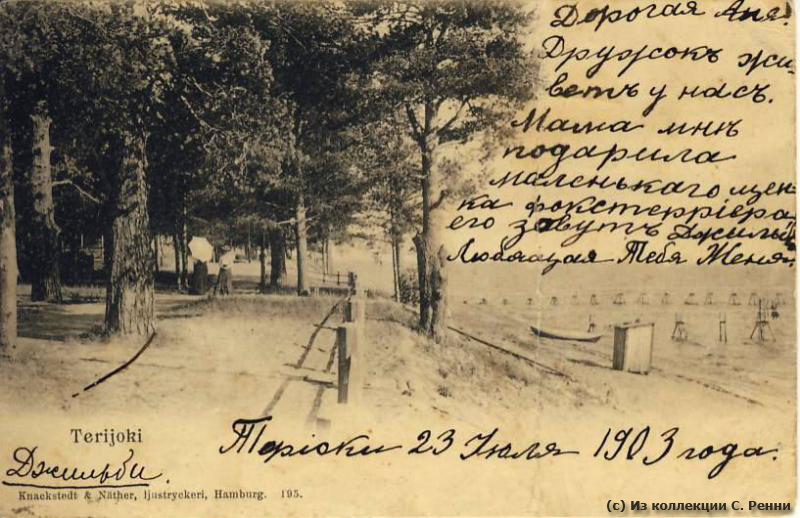 Дорогая Аня!
Дружокъ жи-
ветъ у насъ.
Мама мнѣ
подарила
маленькаго щен-
ка фокстерріера
его зовутъ Джильби
Любящая Тебя Женя.
Terijoki
Теріоки 23 Июля 1903 года.
Джильби.
Knackstedt & Näther, ljustryckeri, Hamburg. 195.
(c) Из коллекции С. Ренни